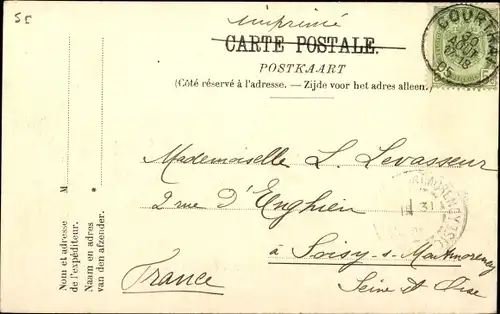 SS
imprimé
CARTE POSTALE.
POSTKAART
(Côté réservé à l'adresse. — Zijde voor het adres alleen.)
COURTRAI
30
18
05
Mademoiselle L. Levasseur
2 rue D'Enghien
à Soisy-s-Montmorency
Seine et Oise
France
MONTMORENCY
31
M
Nom et adresse
de l'expéditeur.
Naam en adres
van den afzender.